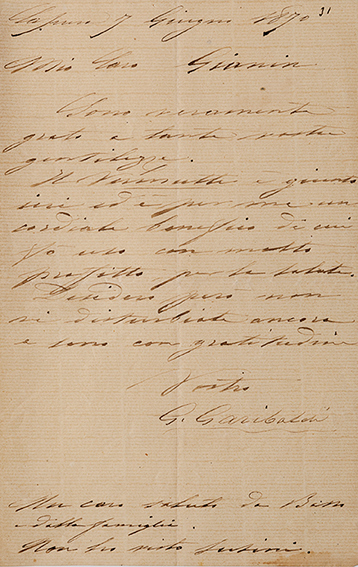 Caprera 7 Giugno 1870 31
Mio Caro Gianin
Sono veramente
grato a tante vostre
gentilezze.
Il è giunto
ieri ed è per me un
cordiale benefizio di cui
fo uso con molto
profitto per la salute.
Desidero però non
vi disturbiate ancora
e sono con gratitudine
Vostro
G. Garibaldi
Un caro saluto da
e dalla famiglia.
Non ho visto Susini.